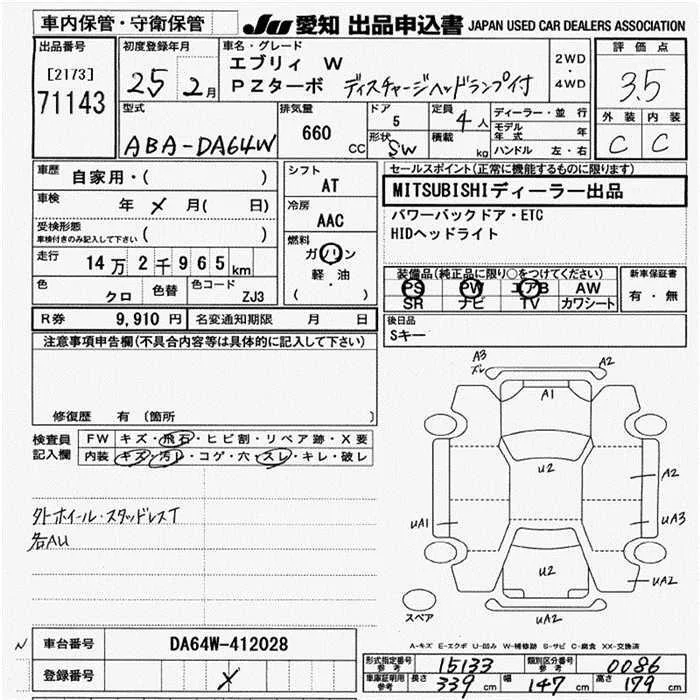 車内保管・守衛保管
JU 愛知 出品申込書 JAPAN USED CAR DEALERS ASSOCIATION
出品番号
[2173]
71143
初度登録年月
25 2月
車名・グレード
エブリィ W
PZターボ ディスチャージヘッドランプ付
2WD
・
4WD
評価点
3.5
外装 内装
C C
型式
ABA-DA64W
排気量
660 CC
ドア
5
形状 SW
定員 4人
積載 kg
ディーラー・並行
モデル年式 年
ハンドル 左・右
車歴
自家用・( )
車検 年 メ 月( 日)
受検形態
車検付きのみ記入して下さい ( )
走行 14万2千965km
色 クロ
色替
色コード ZJ3
シフト
AT
冷房
AAC
燃料
ガソリン
軽・油
( )
セールスポイント(正常に機能するものに限ります)
MITSUBISHIディーラー出品
パワーバックドア・ETC
HIDヘッドライト
装備品(純正品に限り○をつけてください)
PS PW エアB AW
SR ナビ TV カワシート
新車保証書
有・無
R券 9,910円 名変通知期限 月 日
後日品
Sキー
注意事項申告欄(不具合内容等は具体的に記入して下さい)
修復歴 有 〔箇所 〕
検査員
記入欄
FW キズ・飛石・ヒビ割・リペア跡・X要
内装 キズ・汚レ・コゲ・穴・スレ・キレ・破レ
外ホイール・スタッドレスT
各AU
A3
ズレ
A2
A1
U2
A2
UA1
UA3
U2
UA2
スペア
UA2
A-キズ E-エクボ U-凹み W-補修跡 S-サビ C-腐食 XX-交換済
N
車台番号 DA64W-412028
登録番号 メ
形式指定番号
参考
15133
類別区分番号
参考
0086
車庫証明用
参考
長さ 339 cm 幅 147 cm 高さ 179 cm